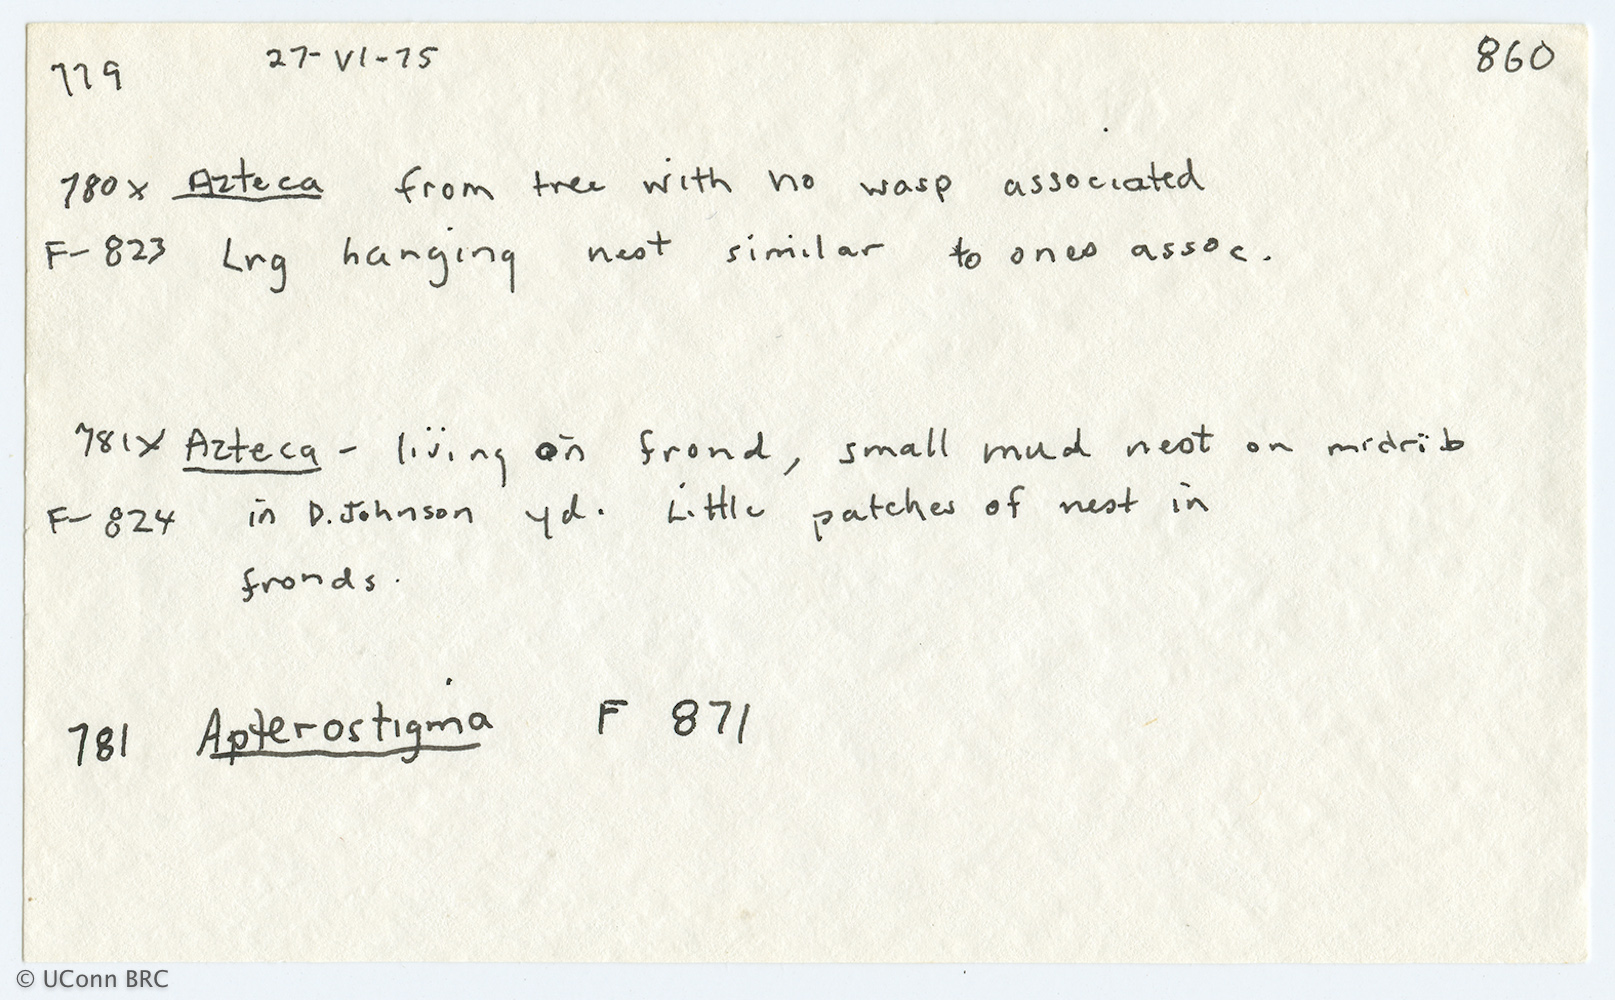 779 27-VI-75 860
780x Azteca from tree with no wasp associated
F-823 Lrg hanging nest similar to ones assoc.
781x Azteca - living on frond, small mud nest on midrib
F-824 in D. Johnson yd. Little patches of nest in
fronds.
781 Apterostigma F 871
© UConn BRC